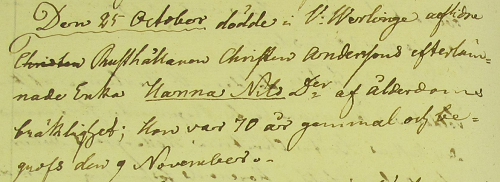 Den 25 October dödde i V: Werlinge aflidne
Christen Rusthållaren Christen Andersons efterläm=
nade Enka Hanna Nils Der af ålderdoms
bräklighet; Hon var 70 år gammal och be=
grofs den 9 November.